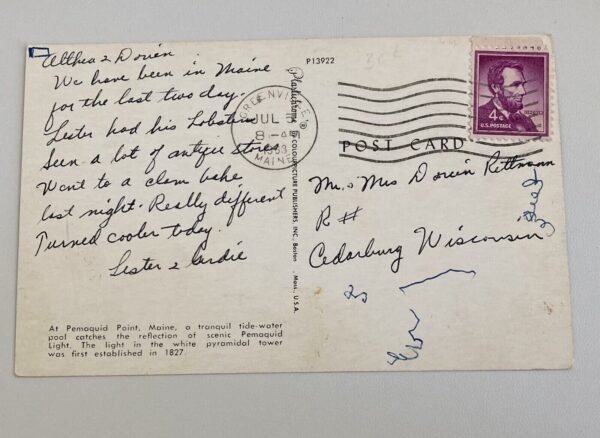 Althea & Dorvin.
We have been in Maine
for the last two day.
Lester had his Lobster
Seen a lot of antique stores
Went to a clam bake
last night. Really different
Turned cooler today.
Lester &
At Pemaquid Point, Maine, a tranquil tide-water
pool catches the reflection of scenic Pemaquid
Light. The light in the white pyramidal tower
was first established in 1827.
P13922
Plastichrome ® by COLOURPICTURE PUBLISHERS, INC. Boston, Mass. U.S.A.
GREENVILLE
JUL
MAINE
4¢
U.S. POSTAGE
POST CARD
Mr. & Mrs Dorvin Rettmann
R#
Cedarburg Wisconsin